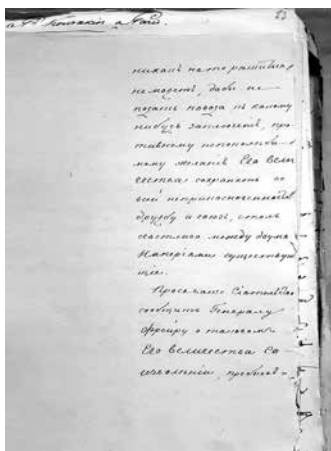 53
никакъ на то рѣшиться
не можетъ, дабы не
подать повода къ какому
нибудь заключенію, про-
тивному непоколеби-
мому желанію Его Вели-
чества сохранить во
всей неприкосновенности
дружбу и союзъ, столь
счастливо между двумя
Имперіями существую-
щіе.
Прося Ваше Сіятельство
сообщить Генералу
о таковомъ
Его Величества Со-
изволеніи,